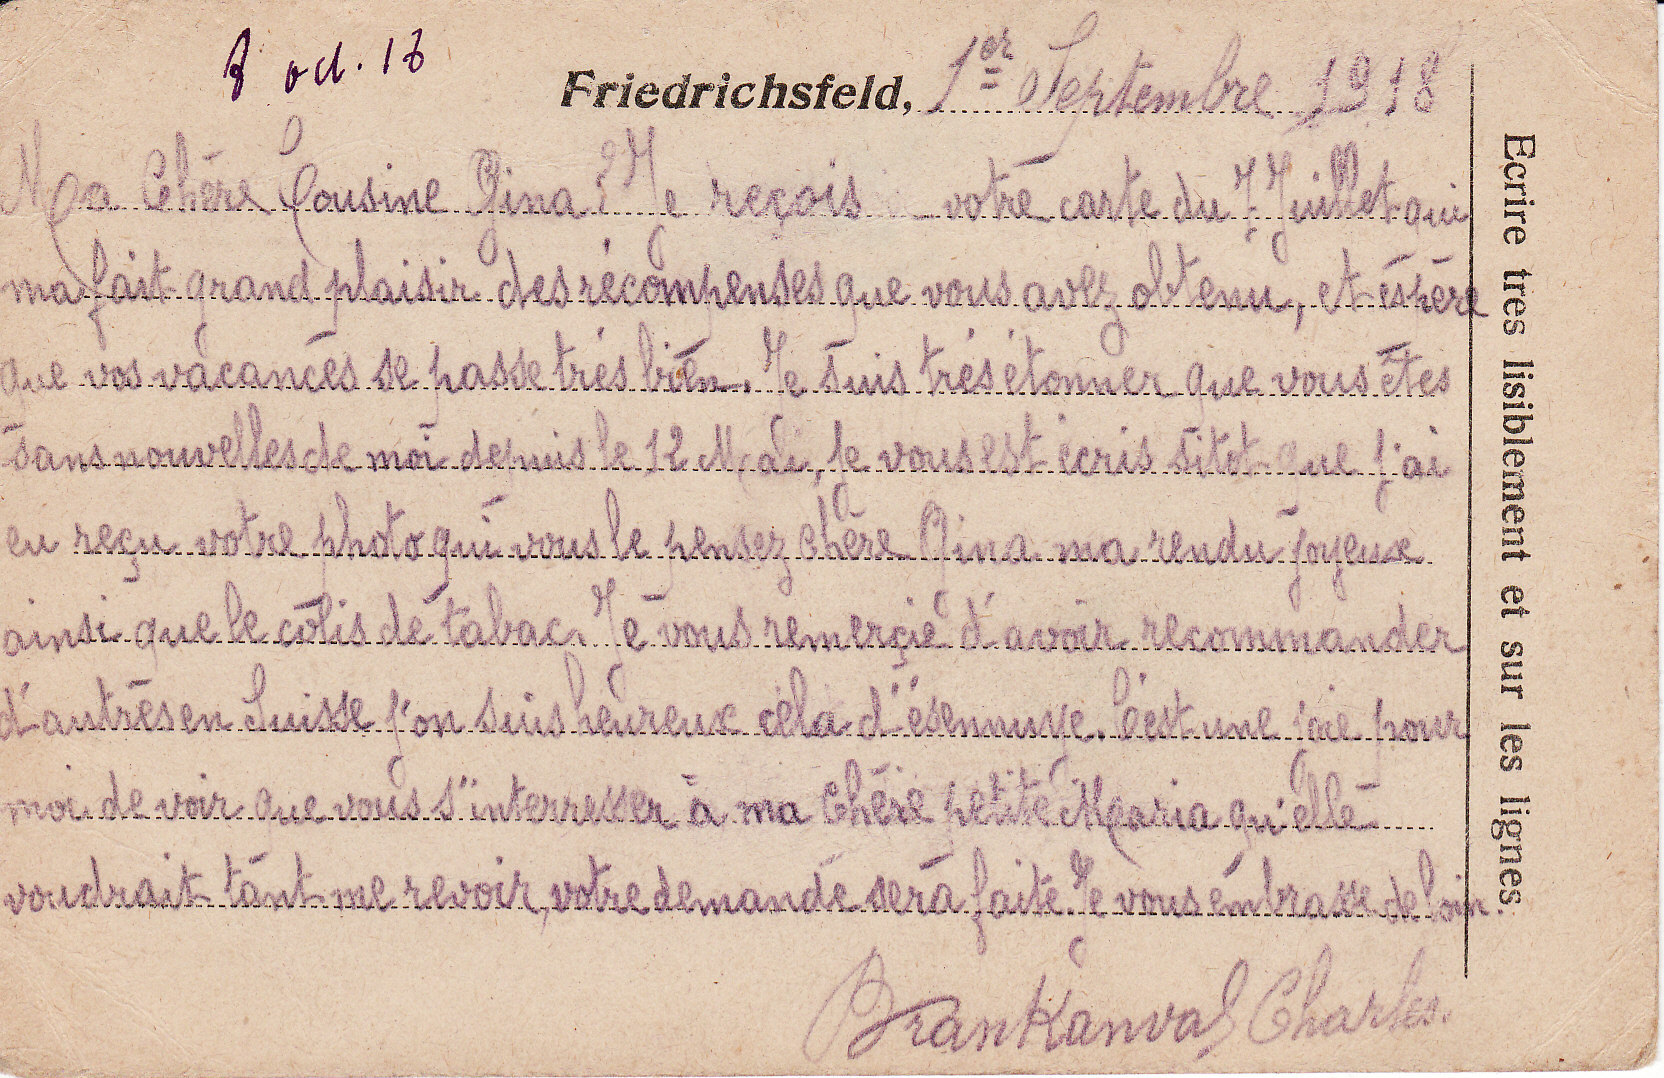 8 oct. 18
Friedrichsfeld, 1er Septembre 1918
Ma Chère Cousine Gina! Je reçois votre carte du 7 Juillet qui
ma fait grand plaisir des récompenses que vous avez obtenu, et éspère
que vos vacances se passe trés bien. Je suis trés étonner que vous êtes
sans nouvelles de moi depuis le 12 Mai, Je vous est écris sitot que j'ai
eu reçu votre photo qui vous le pensez chère Gina ma rendu joyeux
ainsi que le colis de tabac. Je vous remerçie d'avoir recommander
d'autres en Suisse j'on suis heureux cela d'ésennuye. C'est une joie pour
moi de voir que vous s'interresser à ma Chère petite Maria qu'elle
voudrait tant me revoir, votre demande sera faite. Je vous embrasse de loin.
BranKanval Charles.
Ecrire tres lisiblement et sur les lignes